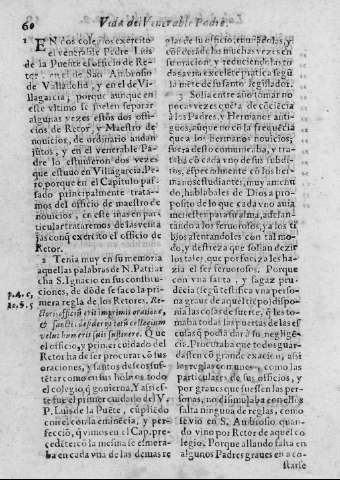 60
Vida del Venerable Padre,
1 EN dos colegios exercitò
el venerable Padre Luis
de la Puente el officio de Re-
tor, en el de San Ambrosio
de Valladolid, y en el de Vi-
llagarcia, porque aunque en
este vltimo se suelen separar
algunas vezes estos dos offi-
cios de Retor, y Maestro de
nouicios, de ordinario andan
jũtos, y en el venerable Pa-
dre lo estuuieron dos vezes
que estuuo en Villagarcia. Pe-
ro porque en el Capitulo pas-
sado principalmente trata-
mos del officio de maestro de
nouicios, en este mas en parti-
cular trataremos de las
jas conq̃ exercito el officio de
Retor.
2 Tenia muy en su memoria
aquellas palabras de N. Patriar
cha S. Ignacio en sus constitu-
ciones, de dõde se saco la pri-
p.4. c,
mera regla de los Retores, Re-
10. §. 5
ctoris officiũ erit imprimis oratione,
& sanctis desiderijs totũ collegium
velut humeris suis sustinere. Que
el officio, y primer cuidado del
Retor ha de ser procurar cõ sus
oraciones, y santos desseos sus-
tẽtar como en sus hõbros todo
el colegio, q̃ gouierna. Y assi es-
te fue el primer cuidado del V.
P. Luis de la Puẽte, cũpliẽdo
con el cõ la eminẽcia, y per-
fecciõ, q̃ vimos en el Cap. pre-
cedẽte: cõ la mesma se esmera-
ba en cada vna de las demas re
glas de su officio, estudiãdolas, y
cõsiderãdolas muchas vezes en
su oracion, y reduciendo las to-
das a vna excelẽte pratica segũ
la mẽte de su santo legislador.
3 Solia entre año tomar no
pocas vezes quẽta de cõciẽcia
a los Padres, y Hermanos anti-
guos, aũque no cõ la frequẽcia
que a los Hermanos nouicios;
fuera desto comunicaba, y tra-
taba cõ cada vno de sus subdi-
tos, especialmente con los her-
manos estudiantes, muy amenu-
do, hablãdoles de Dios a pro-
posito de lo que cada vno auia
menester para su alma, adelan-
tãdo a los feruorosos, y a los ti
bios alentandolos con tal mo-
do, y destreza que solian dezir
los tales, que por fuerça los ha-
zia el ser feruorosos. Porque
con vna santa, y sagaz pru-
dencia (segũ testifica vna perso-
na graue de aquel tiẽpo) dispo-
nia las cosas de suerte, q̃ si todas
las puertas de las puertas de es
cusarse podia dar a su negligẽ-
cia. Procuraba que todos guar-
dassen cõ grande exacciõ, assi
las reglas comunes, como las
particulares de sus officios, y
por graues que fuessen las per-
sonas, no disimulaba con ellos
falta ninguna de reglas, como
se vio en S. Ambrosio quan-
do vino por Retor de aquel co
legio. Porque allando falta en
algunos Padres graues en a co-
starse